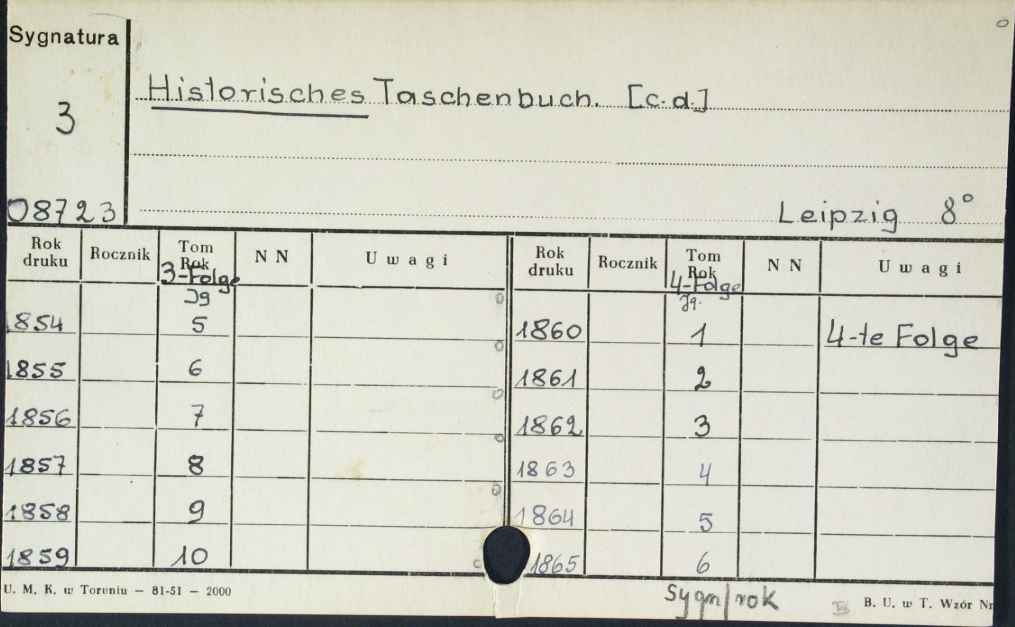 Sygnatura
3
08723
Historisches Taschenbuch. [c.d.]
Leipzig 8°
Rok druku Rocznik Tom Rok N N Uwagi Rok druku Rocznik Tom Rok N N Uwagi
3-Folge 4-Folge
Jg Jg.
1854 5 1860 1 4-te Folge
1855 6 1861 2
1856 7 1862 3
1857 8 1863 4
1858 9 1864 5
1859 10 1865 6
U. M. K. w Toruniu — 81-51 — 2000
Sygn/rok
B. U. w T. Wzór Nr